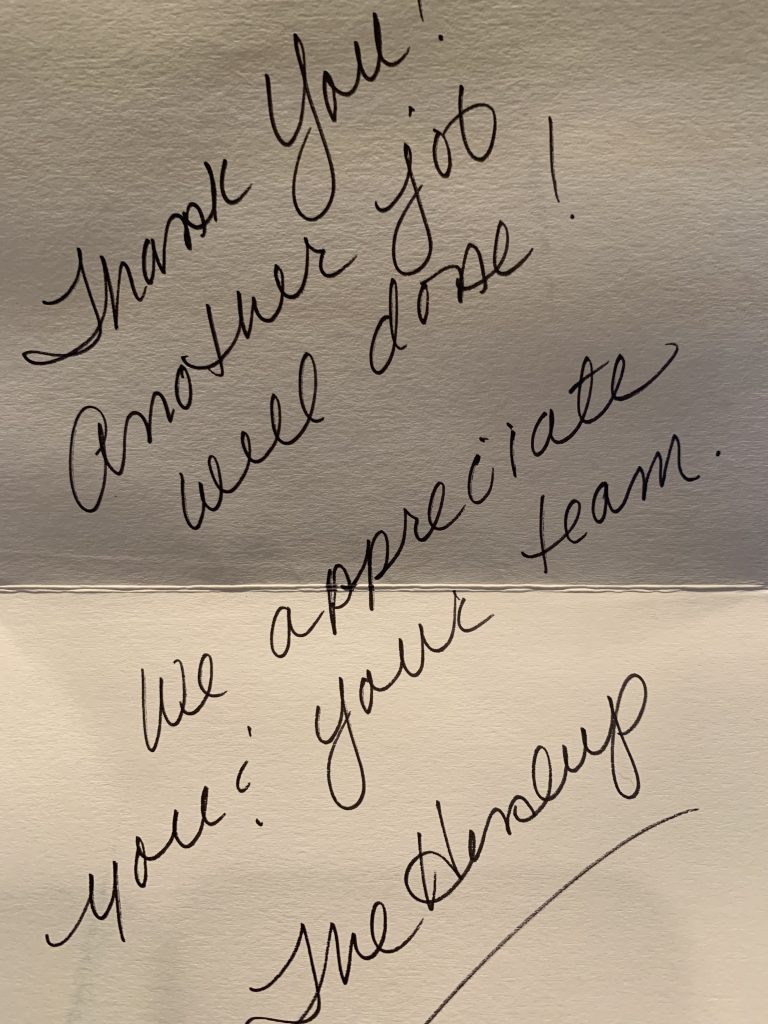 Thank You!
Another job
well done!
We appreciate
you & your team.
The